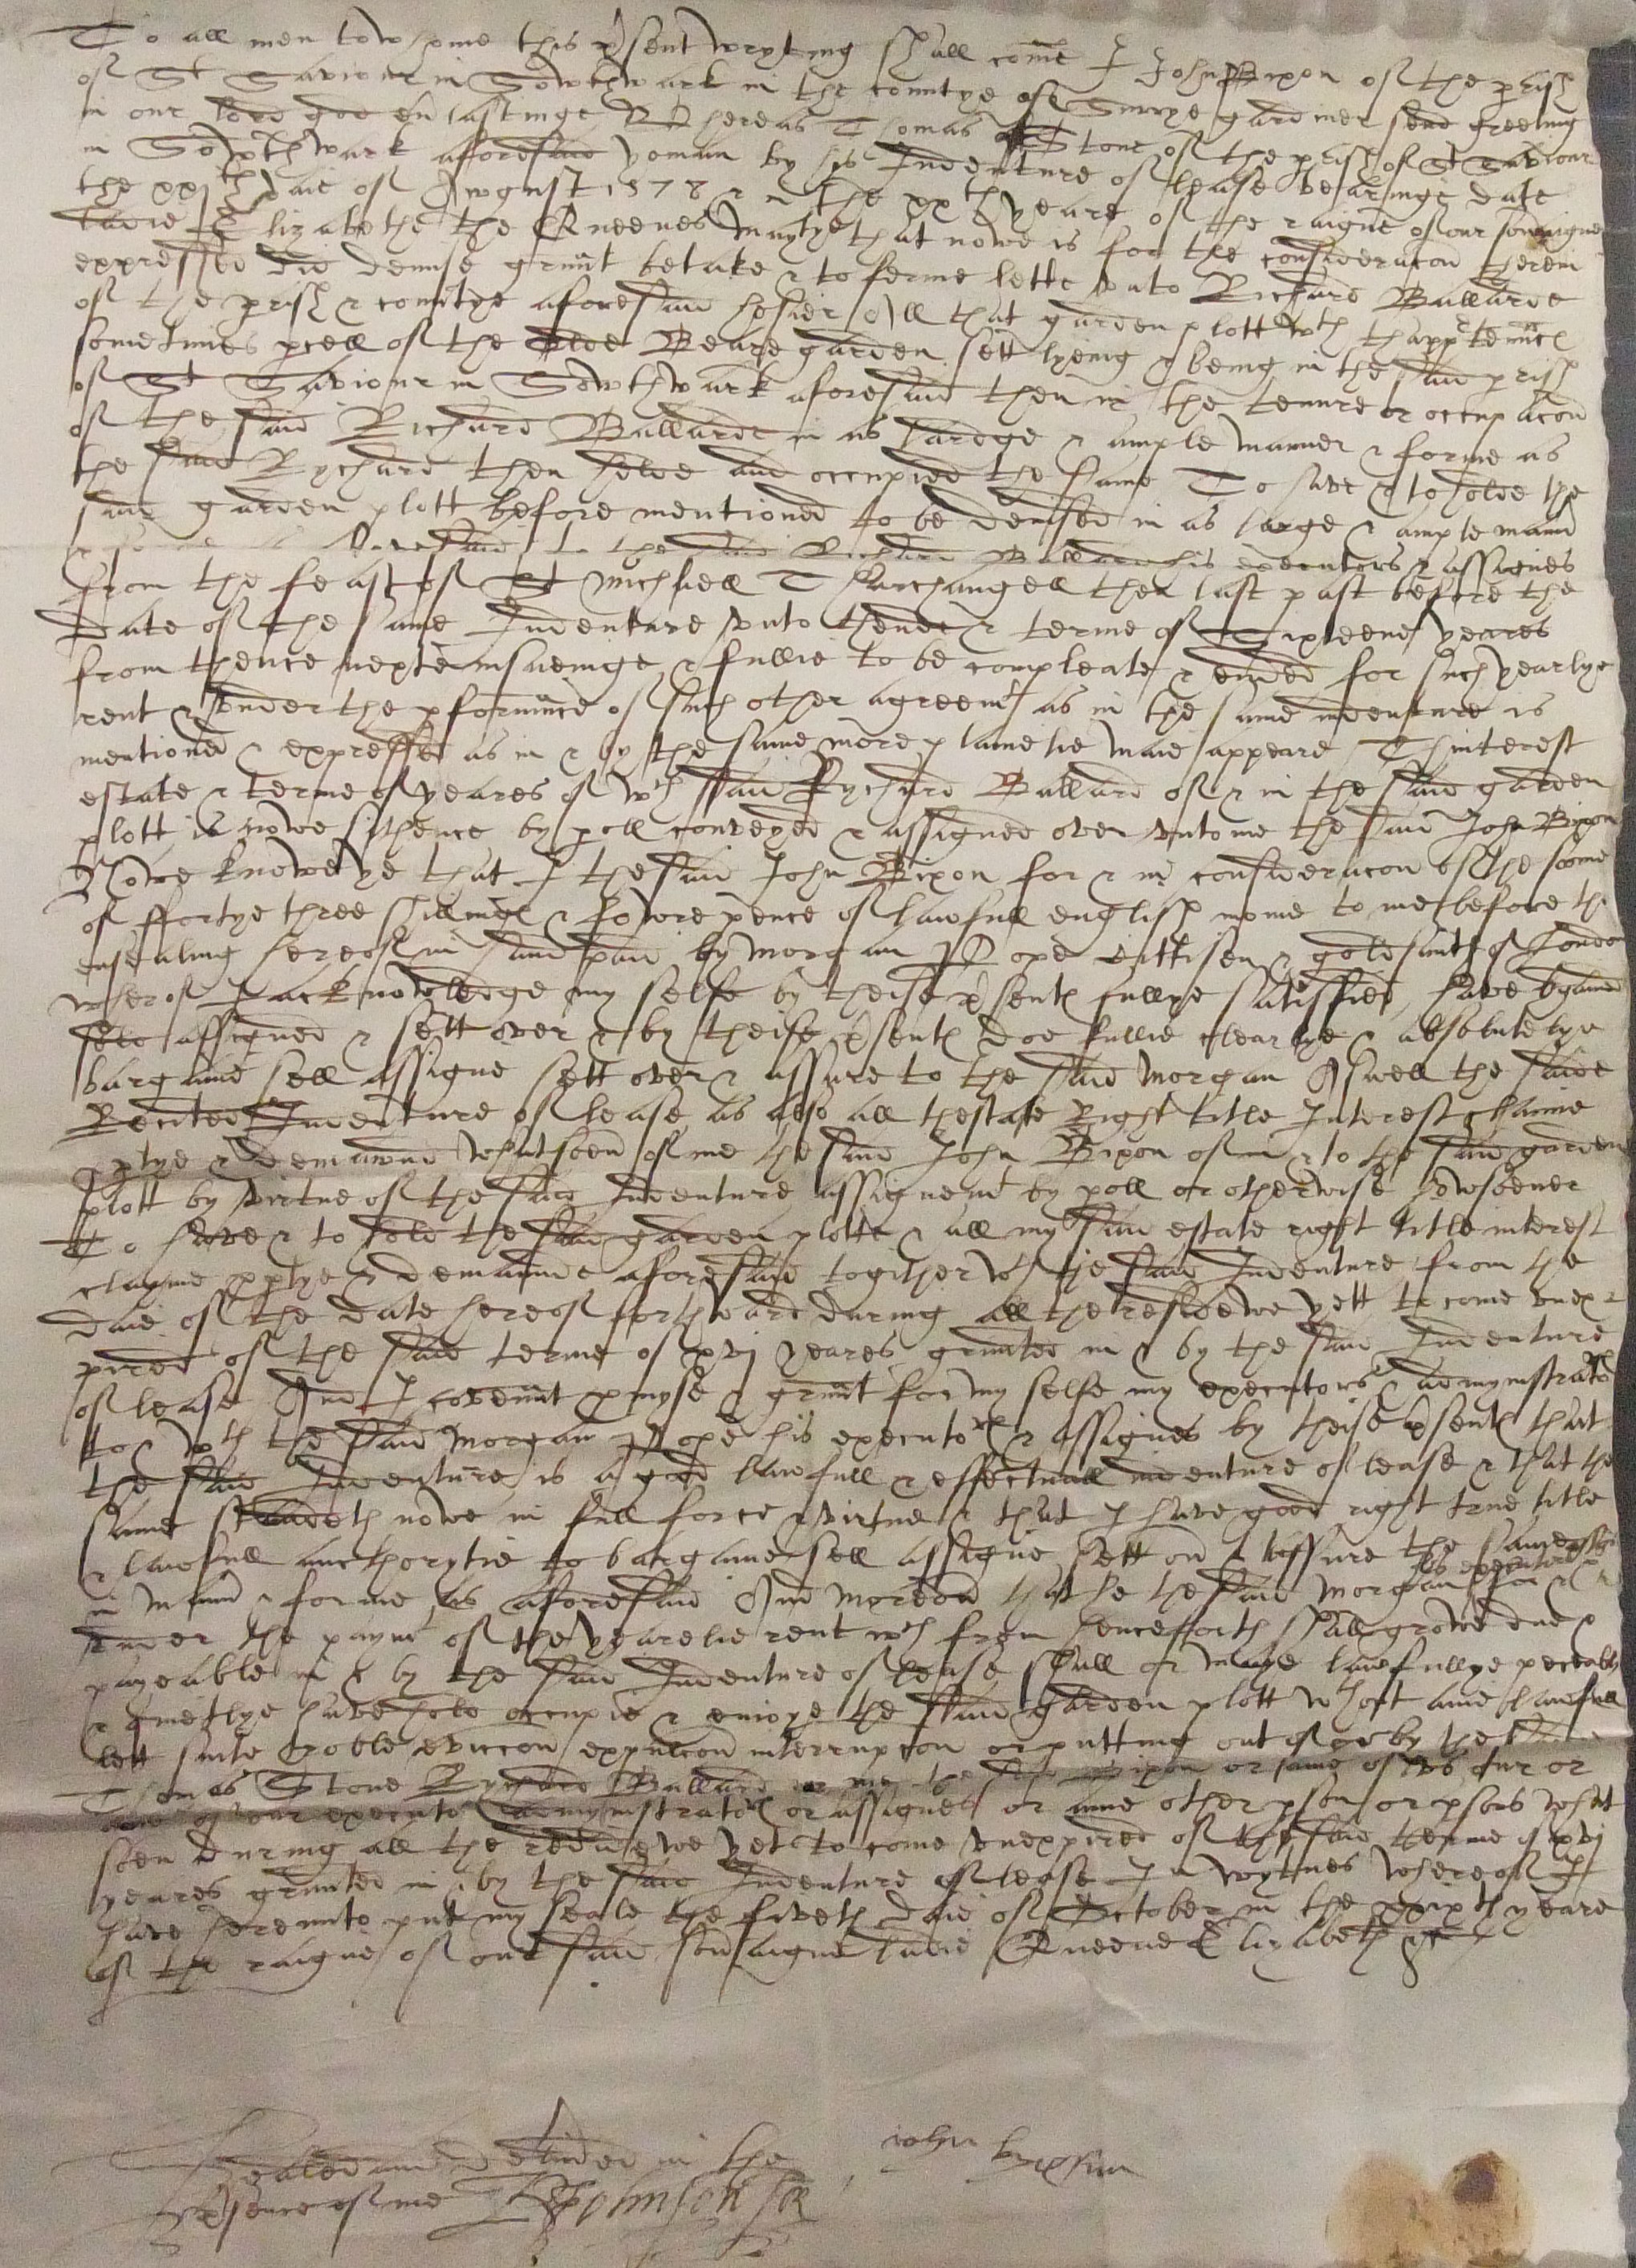 To all men to whome this p'sent wryting shall come I John Bixon of the p'ish
of St Saviour in Sowthwark in the countye of Surrye gardiner send greeting
in our lord god eu'lastinge Whereas Thomas Stone of the p'ish of St Saviour
in Sowthwark aforesaid yoman by his Indenture of lease bearinge date
the xxjth daie of August 1578 & in the xxth yeare of the raigne of our sou'aigne
ladie Elizabethe the Queenes maiestye that nowe is for the consideracon therein
expressed did demise graunt betake & to ferme lette unto Richard Ballarde
of the p'ish & countye aforesaid hosier All that garden plott wth thapp'tennc'
sometimes p'cell of the olde Beare garden sett lyeing & being in the said p'ish
of St Saviour in Sowthwark aforesaid then in the tenure or occupacon
of the said Richard Ballarde in as lardge & ample manner & forme as
the said Rychard then helde and occupied the same To have & to holde the
said garden plott before mentioned to be demised in as large & ample mann'
& forme as aforesaid to the said Richard Ballard his executors & assignes
from the feast of St Michaell Tharchangell then last past before the
date of the same Indenture unto thende & terme of Sixteene yeares
from thence nexte insueinge & fullie to be compleate & ended for such yearlye
rent & under the p'formnce of such other agreemts as in the same indenture is
mentioned & expressed as in & by the same more plainelie maie appeare Thinterest
estate & terme of yeares of wch said Rychard Ballard of & in the said garden
plott is nowe sithence by poll conveyed & assigned over unto me the said John Bixon
Nowe knowe ye that I the said John Bixon for & in consideracon of the some
of ffortye three shillings & fowre pence of lawfull english monie to me before th
ensealing hereof in hand paid by Morgan Pope cittisen & goldsmith of london
wherof I acknowledge my selfe by theise p'sents fullye satisfied have b'gained
sold assigned & sett over & by theise p'sents doe fullie clearlye & absolutelye
bargaine sell assigne sett over & assure to the said Morgan Aswell the saide
Recited Indenture of lease as also all thestate Right title Interest claime
p'ptye & demaund whatsoeu' of me the said John Bixon of in & to the said garden
plott by virtue of the said Indenture assignemt by poll or otherwise howsoever
To have & to hold the said garden plotte & all my said estate right title interest
clayme p'ptye & demaunde aforesaid togither wth the said Indenture from the
daie of the date hereof forthward during all the residewe yett to come unex
pired of the said terme of xvj yeares graunted in & by the said Indenture
of lease And I covennt p'myse & graunt for my selfe my executors & admynistrators
to & wth the said Morgan Pope his executors & assignes by theise p'sents that
the said Indenture is a good lawfull & effectuall indenture of lease & that the
same standeth nowe in full force & virtue & that I have good right true title
& lawfull aucthorytie to bargaine sell assigne sett ou' & assure the same
in mann' & forme as aforesaid And moreou' that he the said Morgan his executors
under the paymt of the yearelie rent wch from henceforth shall growe due &
payeable in & by the said Indenture of lease shall or maye lawfullye peceably
& quietlye have hold occupie & enioye the said garden plott wthout anie lawfull
lett suite troble eviccon expulcon interrupcon or putting out of or by the said
Thomas Stone Rychard Ballard or me the said Bixon or anie of us our or
anie of our executors admynistrators or assignes or anie other p'son or p'sons what
soeu' during all the residewe yet to come unexpired of the said terme of xvj
yeares graunted in & by the said Indenture of lease In wytnes whereof I
have hereunto putt my seale the fiveth daie of October in the xxixth yeare
of the raigne of our said sou'aigne ladie Queene Elizabeth &c
Sealed and delivered in the
p'sence of me Johnson scr
john bixson